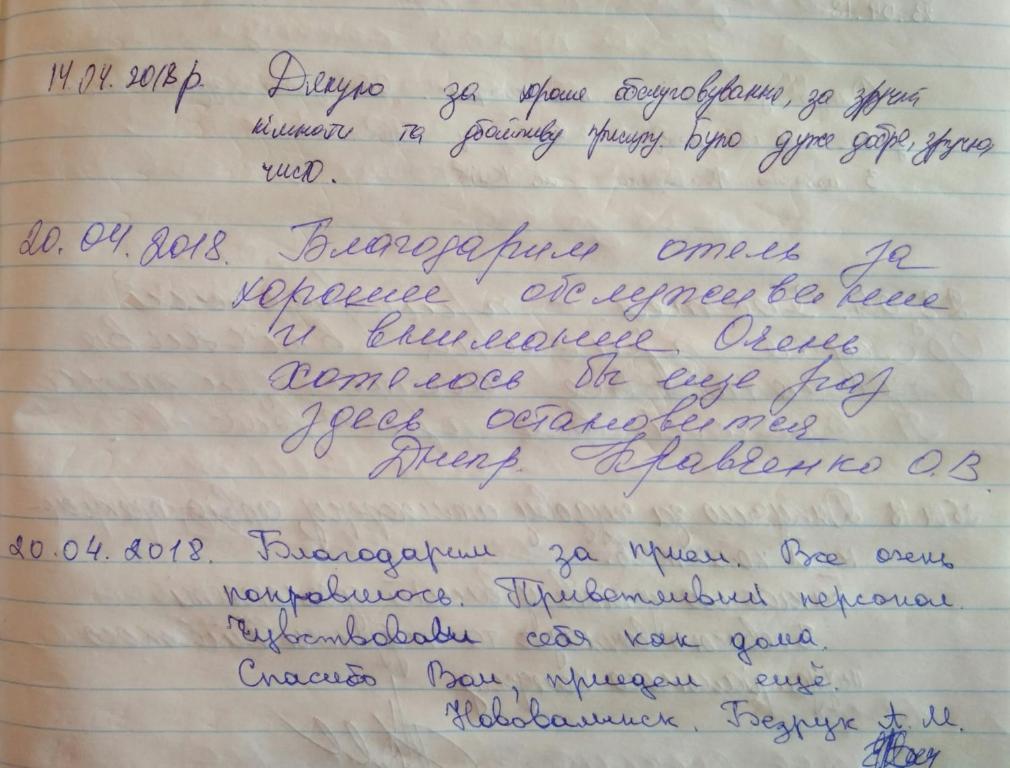 14.04.2018 р. Дякую за хороше обслуговування, за зручні
кімнати та привітну прислугу. Було дуже добре, зручно,
чисто.
20.04.2018. Благодарим отель за
хорошее обслуживание
и внимание. Очень
хотелось бы еще раз
здесь остановится
Днепр. Кравченко О.В.
20.04.2018. Благодарим за прием. Все очень
понравилось. Приветливый персонал.
Чувствовали себя как дома.
Спасибо Вам, приедем ещё.
Безрук А.М.